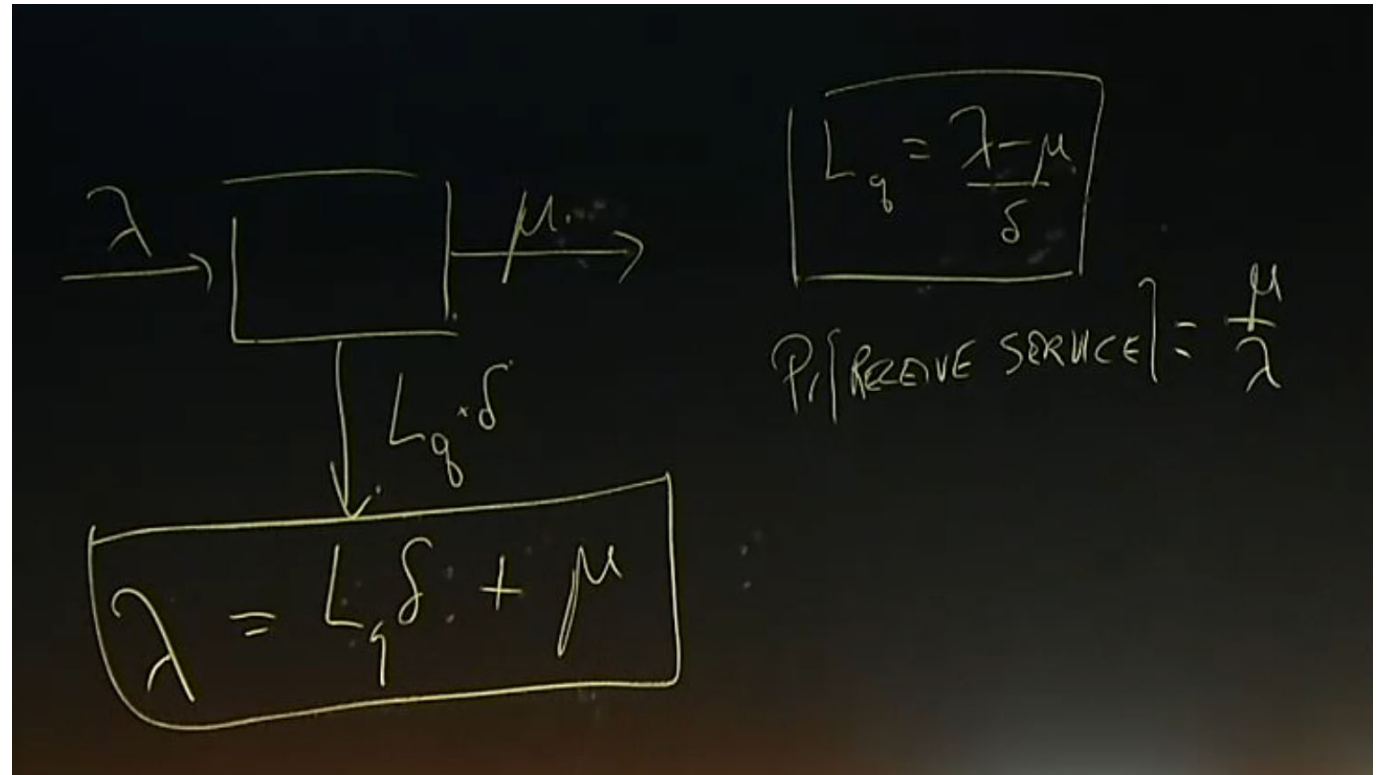 λ
μ
L_q · δ
λ = L_q δ + μ
L_q = (λ - μ) / δ
Pr[RECEIVE SERVICE] = μ / λ